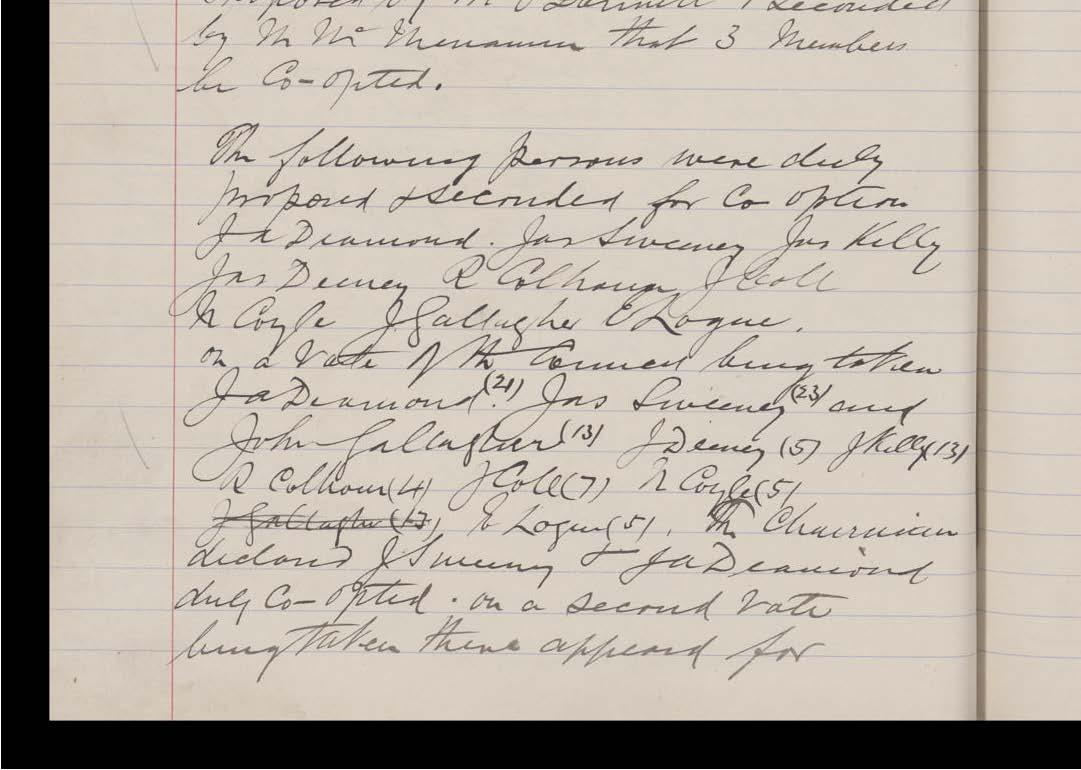 proposed by Mr O'Donnell & seconded
by Mr Mc Menamin that 3 Members
be Co-opted.
The following persons were duly
proposed & seconded for Co option
J A Deamond. Jas Sweeney Jas Kelly
Jas Deeney R Colhoun J Coll
N Coyle J Gallagher E Logue.
on a Vote of the Council being taken
J A Deamond (21). Jas Sweeney (23) and
John Gallagher (13) J Deeney (5) J Kelly (13)
R Colhoun (4) J Coll (7) N Coyle (5)
J Gallagher (13) E Logue (5). The Chairman
declared J Sweeney & J A Deamond
duly Co-opted. on a second Vote
being taken there appeard for